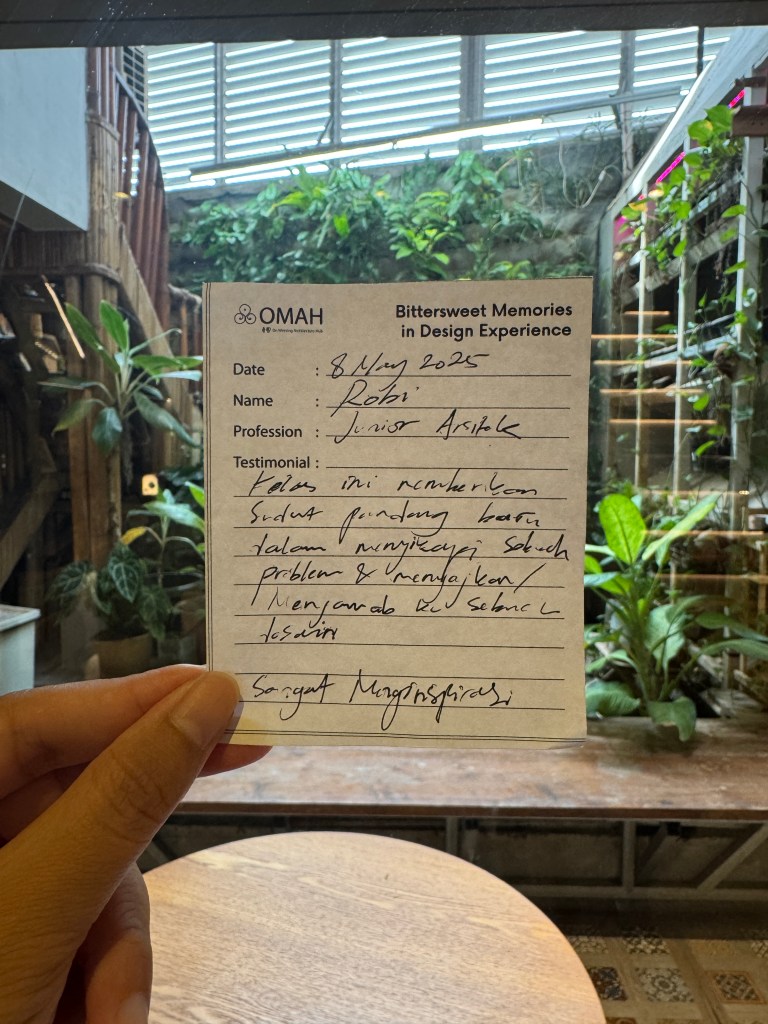 OMAH
Bittersweet Memories
in Design Experience
Date : 8 May 2025
Name : Robi
Profession : Junior Arsitek
Testimonial :
Kelas ini memberikan
Sudut pandang baru
dalam menyikapi sebuah
problem & menyajikan/
Menjawab ke sebuah
desain
Sangat Menginspirasi